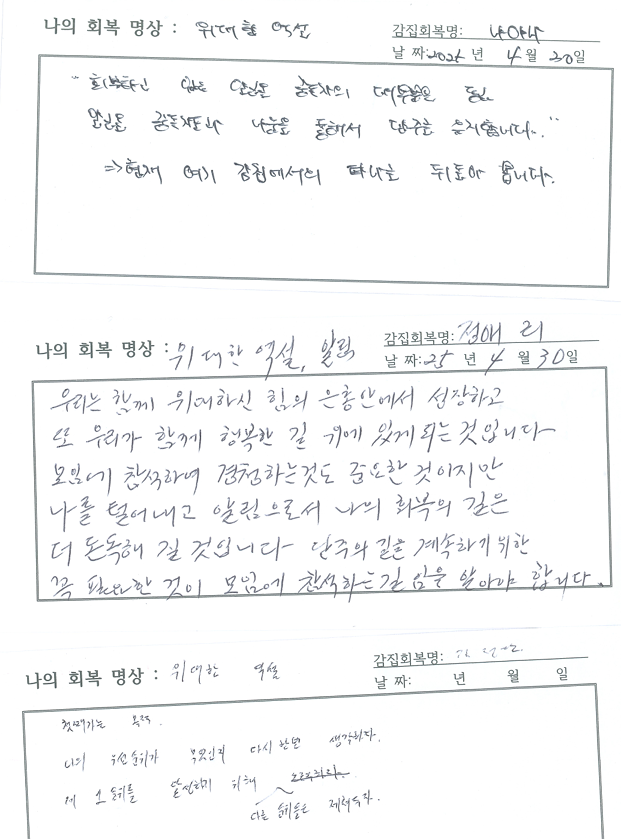 나의 회복 명상 : 위대한 역설 감집회복명: 나야나
날 짜: 2025 년 4 월 30 일
" 회복하고 있는 알콜 중독자의 대부분은 동료
알콜 중독자와 나눔을 통해서 단주를 유지합니다.. "
=> 현재 여기 감집에서의 나를 뒤돌아 봅니다.
나의 회복 명상 : 위대한 역설, 알림 감집회복명: 정애 리
날 짜: 25 년 4 월 30 일
우리는 함께 위대하신 힘의 은총안에서 성장하고
또 우리가 함께 행복한 길 위에 있게 되는 것입니다
모임에 참석하여 경청하는것도 중요한 것이지만
나를 털어내고 알림으로서 나의 회복의 길은
더 돈독해 질 것입니다 단주의 길을 계속하기 위한
꼭 필요한 것이 모임에 참석하는길 임을 알아야 합니다.
나의 회복 명상 : 위대한 역설 감집회복명:
날 짜: 년 월 일
첫째가는 목적.
나의 우선순위가 무엇인지 다시한번 생각하다.
제 1 순위를 달성하기 위해
다른 순위들은